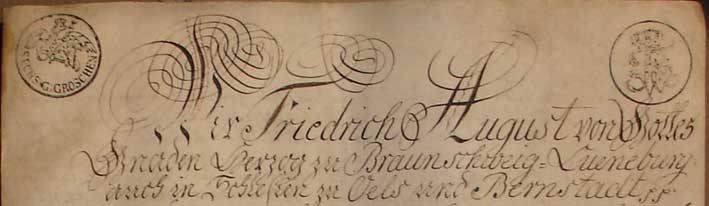 SECHS G. GROSCHEN
Wir Friedrich August von Gottes
Gnaden Herzog zu Braunschweig=Lueneburg
auch in Schlesien zu Oels und Bernstadt pp